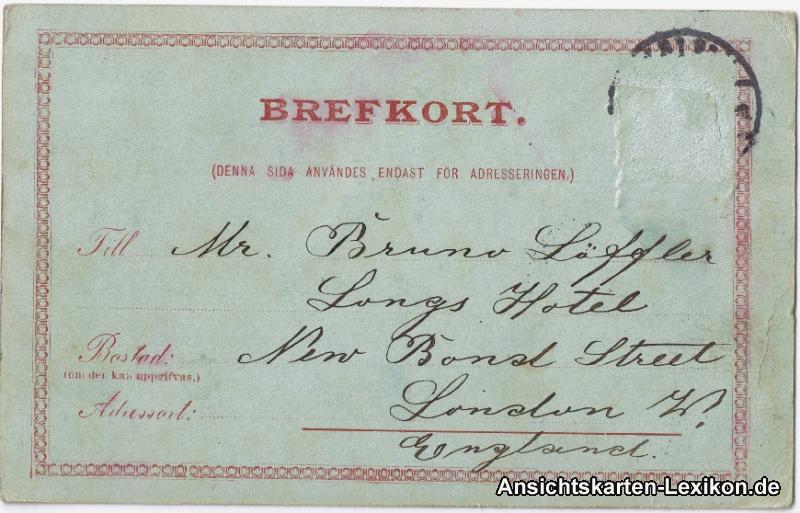 BREFKORT.
(DENNA SIDA ANVÄNDES ENDAST FÖR ADRESSERINGEN.)
Till Mr. Bruno Löffler
Longs Hotel
Bostad: New Bond Street
(om det kan uppgifvas.)
Adressort: London W.
England.
Ansichtskarten-Lexikon.de